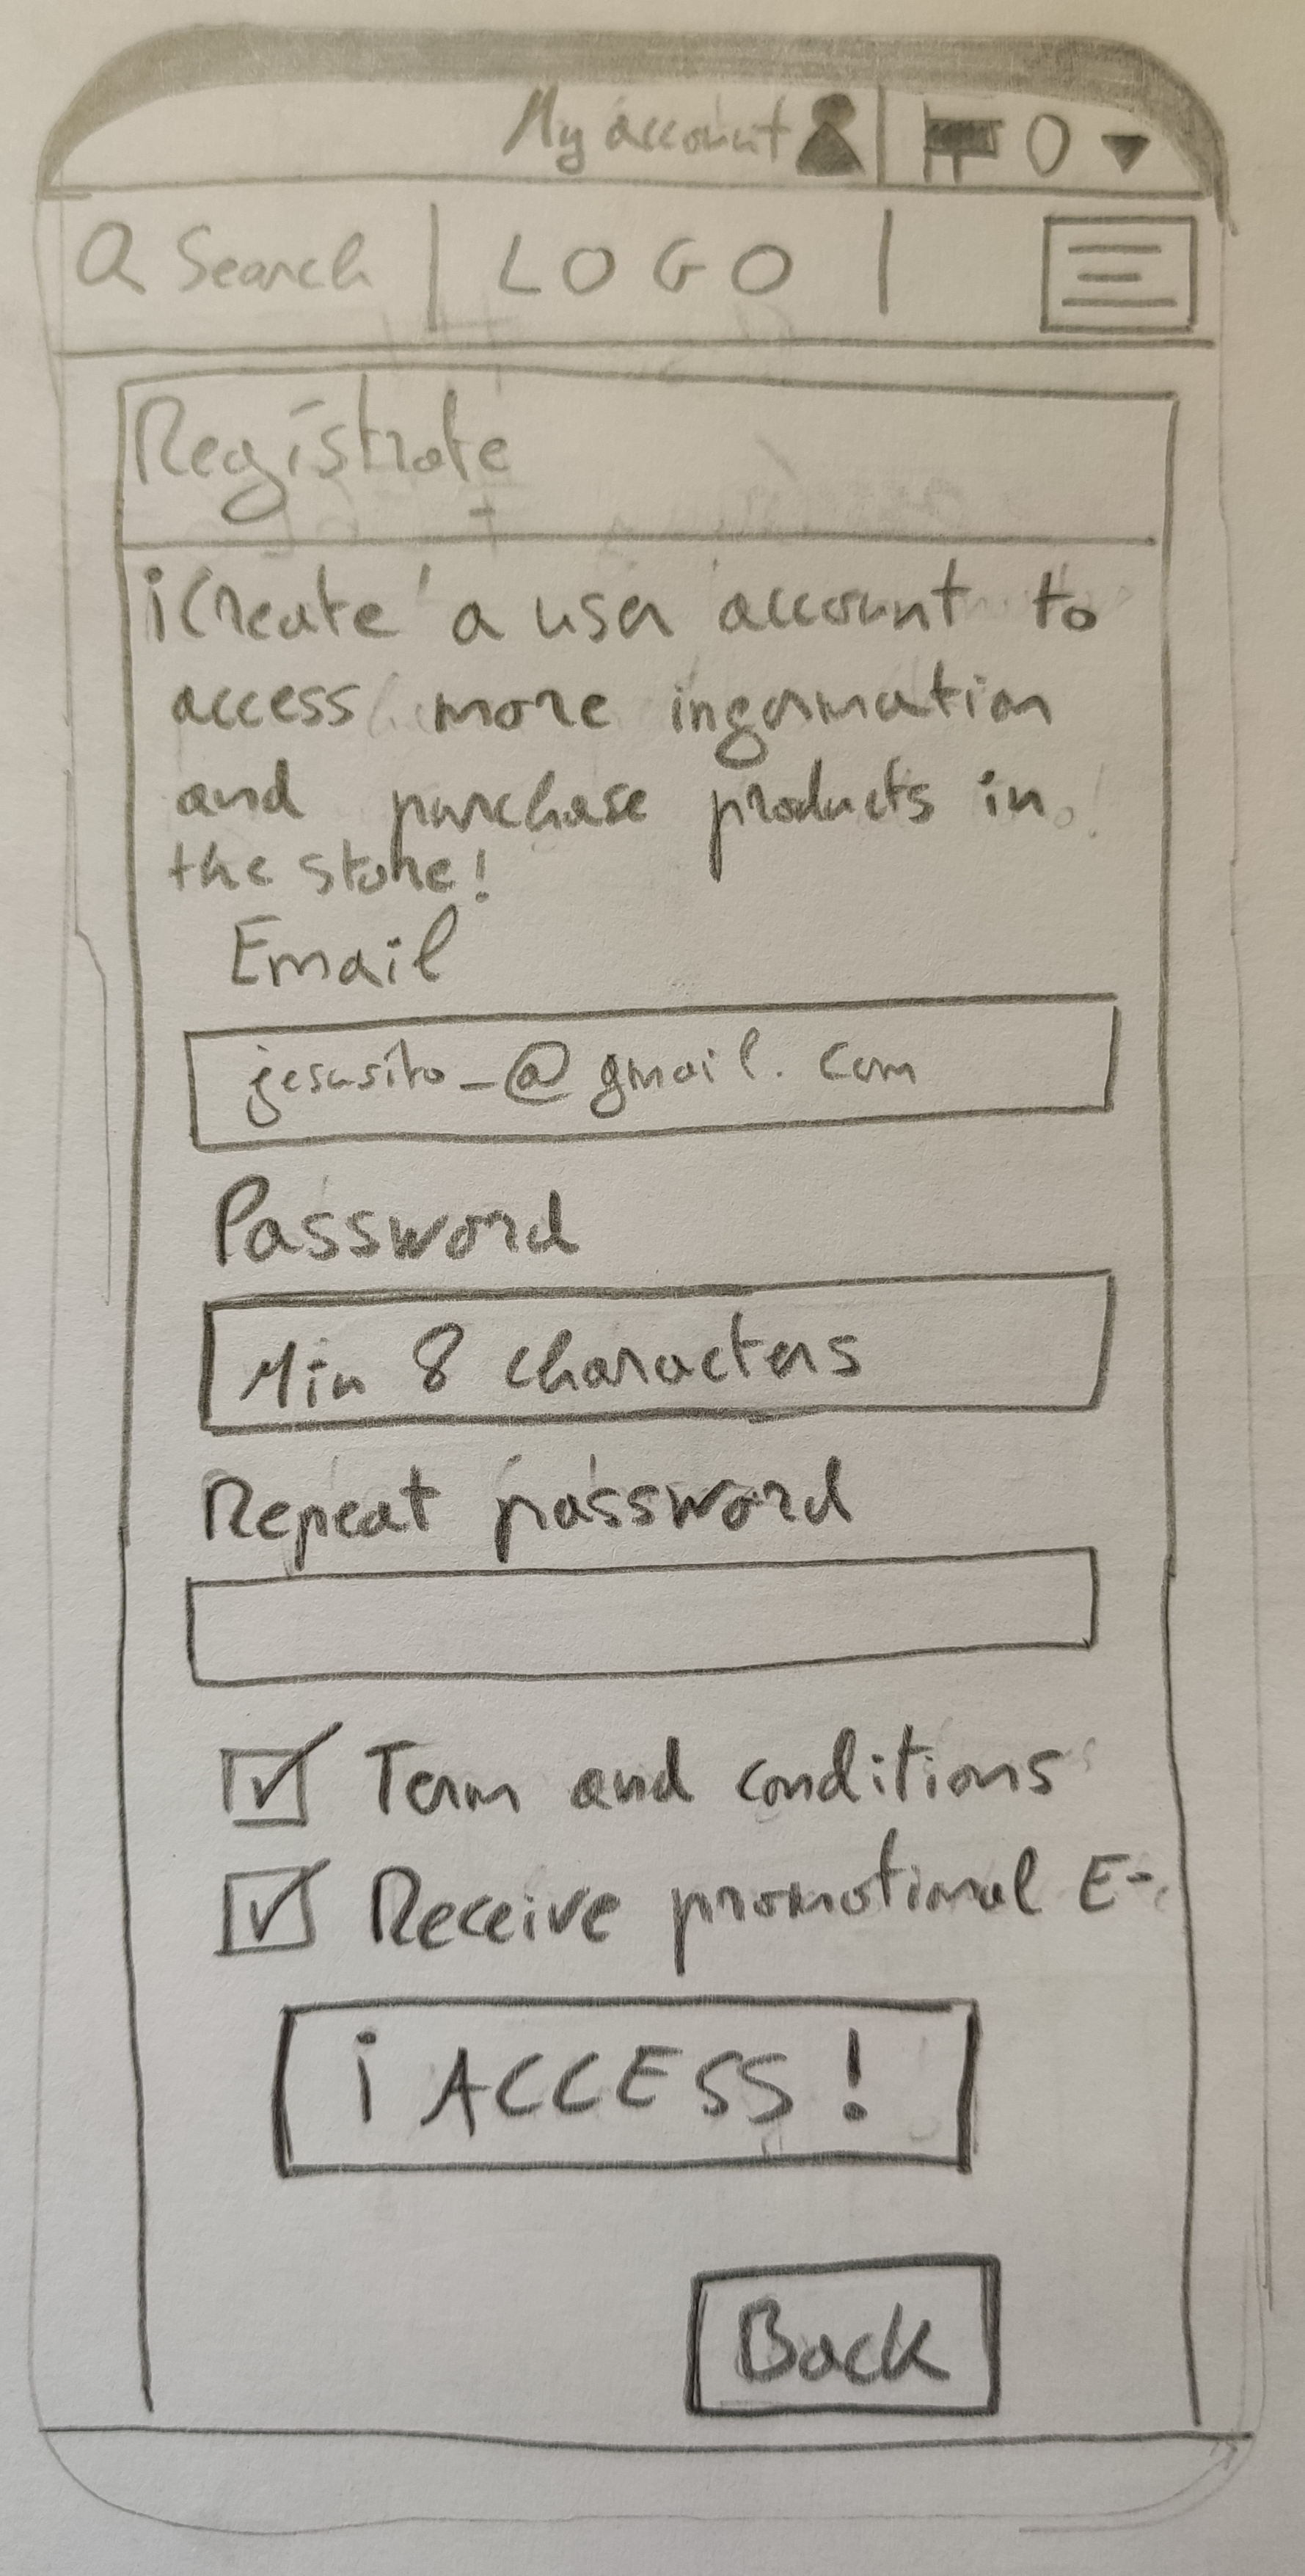 My account 0
Search | LOGO |
Registrate
¡Create a user account to
access more ingormation
and purchase products in
the store!
Email
jesusito_@gmail.com
Password
Min 8 characters
Repeat password
Term and conditions
Receive promotional E-
¡ACCESS!
Back